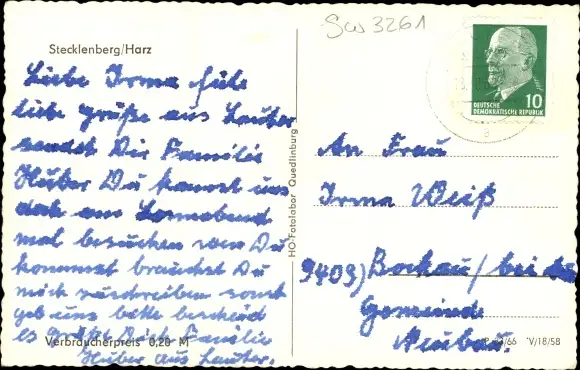 SW 3261
Stecklenberg/Harz
Liebe Irma file
liebe grüße aus Lauter
sendet Dir Familie
Hüber Du kannst uns
doch am Sonnabend
mal besuchen wen Du
kommst brauchst Du
nich zuschreiben sonst
geb uns bitte bescheid
es grüßt Dich Familie
Hüber aus Lauter.
Verbraucherpreis 0,20 M
HO-Fotolabor Quedlinburg
DEUTSCHE
DEMOKRATISCHE REPUBLIK
10
An Frau
Irma Weiß
9409) Bockau / bei
Gemeinde
Neubau.
V/18/58